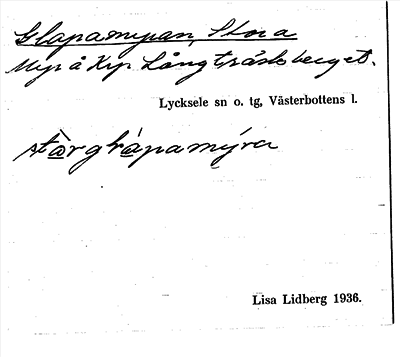 Glapamyran, Stora
Myr å Krp Långträskberget.
Lycksele sn o. tg, Västerbottens l.
stòrglápamýra
Lisa Lidberg 1936.